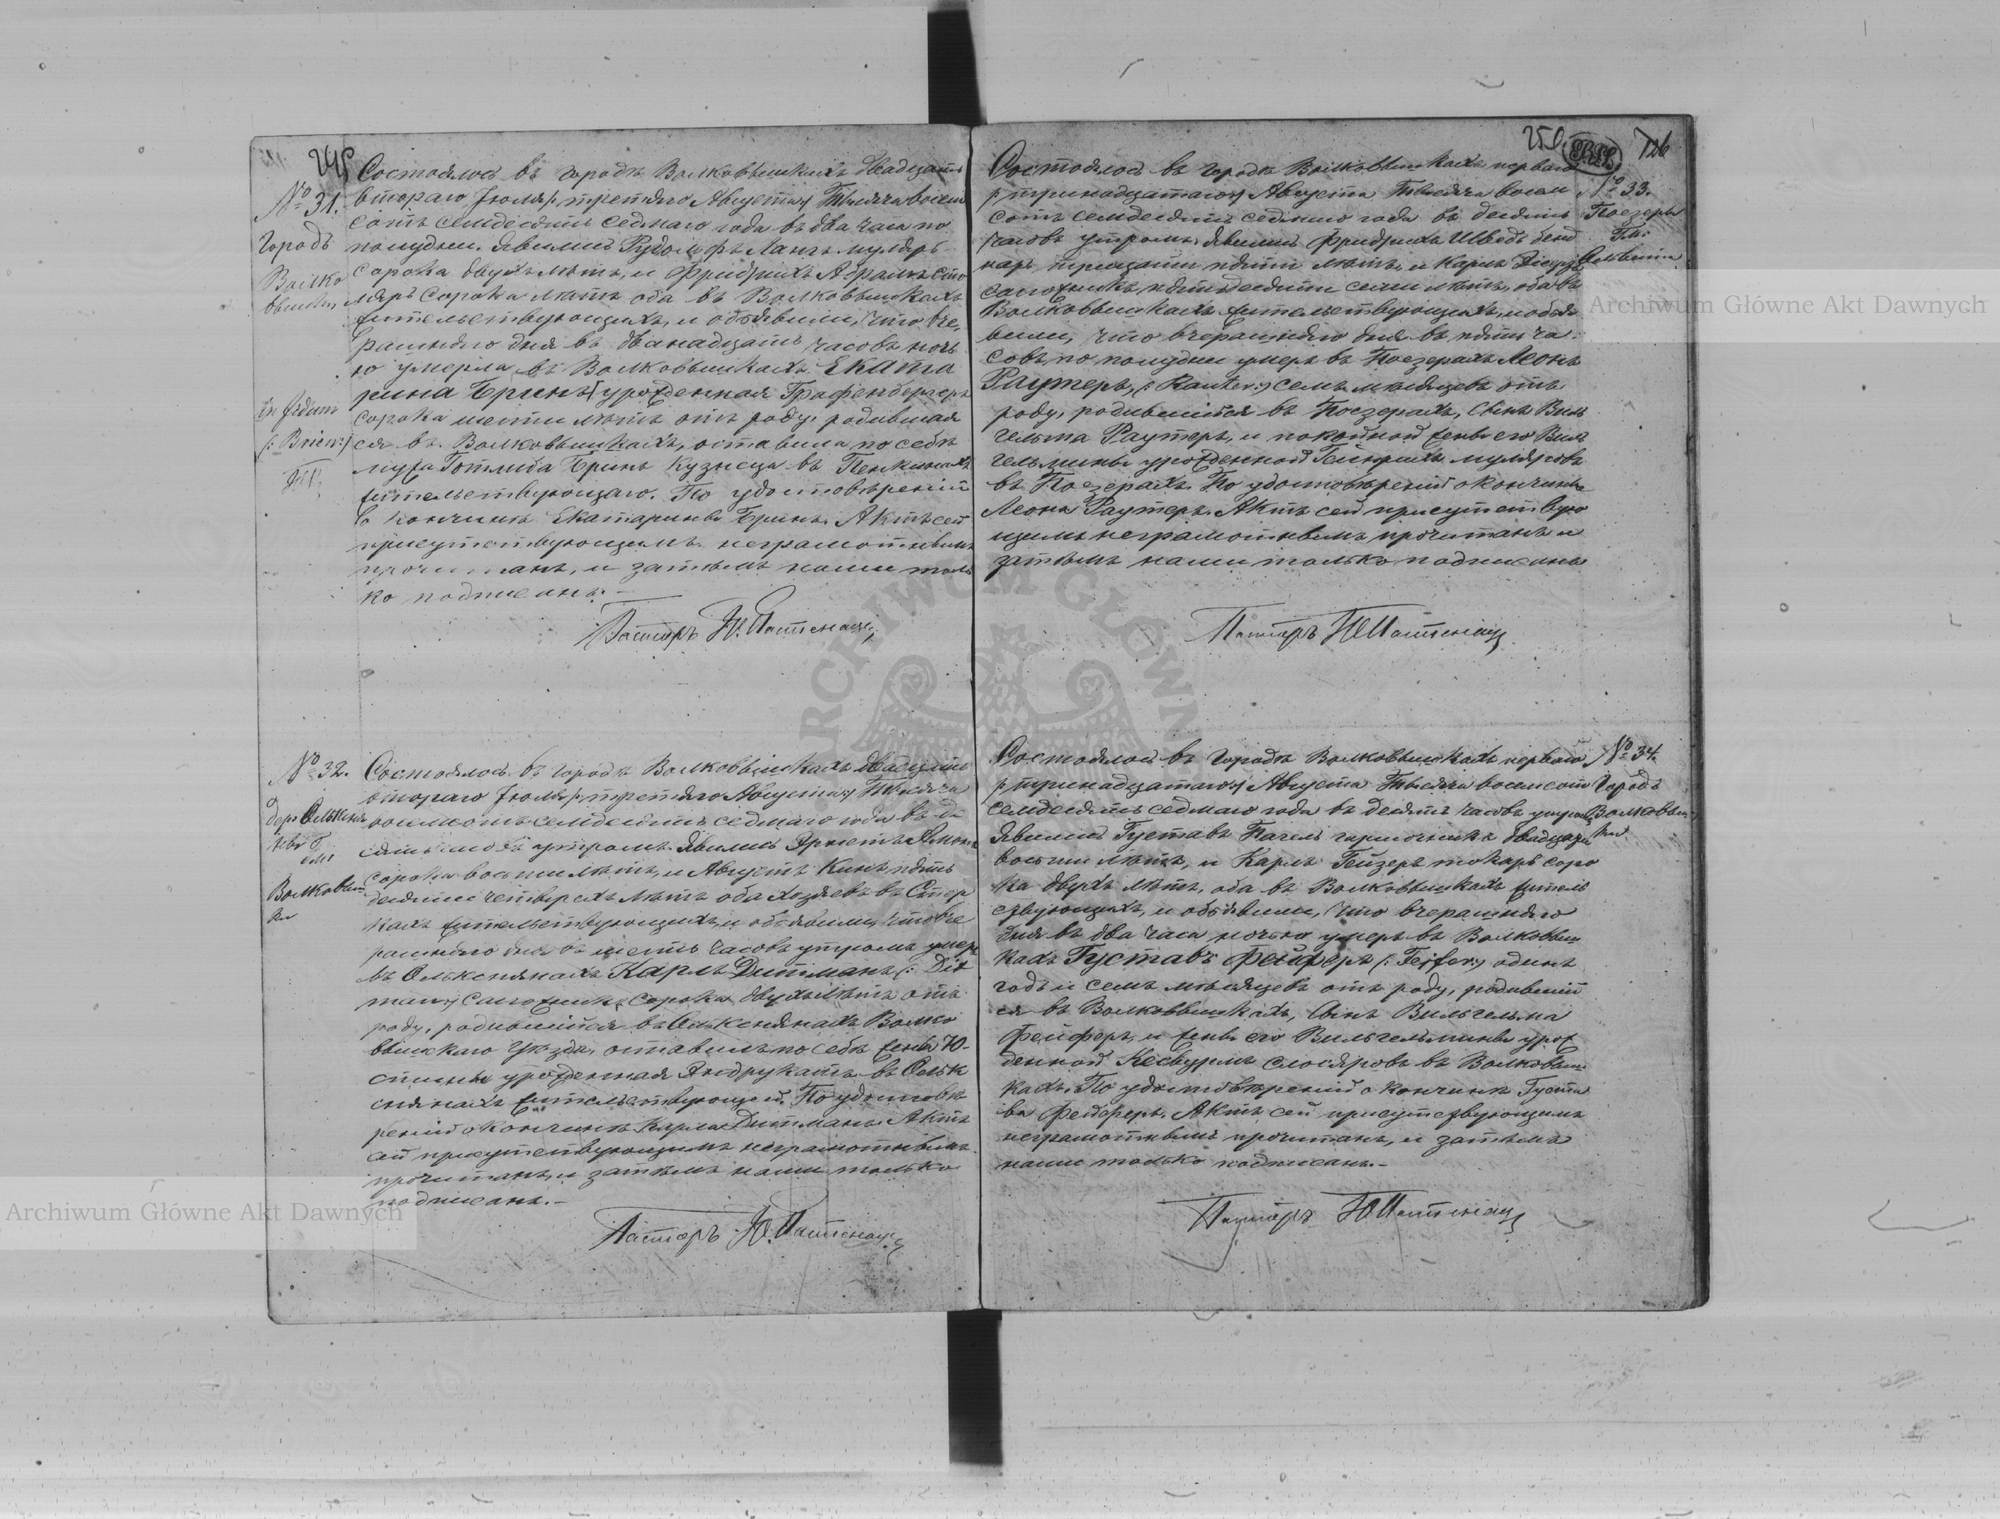 № 31.
Городъ
Волко
вышки
Состоялось въ городѣ Волковышкахъ двадцать
втораго Іюля /: третяго Августа :/ Тысяча восемь
сотъ семдесятъ седмаго года въ два часа по
полудни. Явились Рудольфъ Лангъ муляръ
сорока двухъ лѣтъ, и Фридрихъ Абрамъ сто
ляръ сорока лѣтъ оба въ Волковышкахъ
жительствующихъ, и объявили, что вче
рашняго дня въ дванадцать часовъ ночь
ю умерла въ Волковышкахъ Екате
рина Бринъ урожденная Графенбергеръ
(: Brien :)
сорока шести лѣтъ отъ роду, родившая
ся въ Волковышкахъ, оставила по себѣ
мужа Готлиба Бринъ кузнеца въ
жительствующаго. По удостовѣреніи
о кончинѣ Екатерины Бринъ, Актъ сей
присутствующимъ неграмотнымъ
прочитанъ, и затѣмъ нами толь
ко подписанъ.—
Пасторъ Ю.
№ 32.
Волковыш
ки
Состоялось въ городѣ Волковышкахъ двадцать
втораго Іюля /: третяго Августа :/ Тысяча
восемсотъ семдесятъ седмаго года въ де
сять часовъ утромъ. Явились Эрнстъ
сорока восьми лѣтъ, и Августъ Кинъ пять
десяти четырехъ лѣтъ оба хозяевъ въ
кахъ жительствующихъ, и объявили, что вче
рашняго дня въ шесть часовъ утромъ умеръ
въ Ольксиянахъ Карлъ Дитманъ (: Dit
man :) сапожникъ сорока двухъ лѣтъ отъ
роду, родившійся въ Ольксиянахъ Волко
вышскаго Уѣзда, оставилъ по себѣ жены Ю-
стины урожденная Андрукатъ въ Ольк
сиянахъ жительствующей. По удостовѣ
реніи о кончинѣ Карла Дитманъ, Актъ
сей присутствующимъ неграмотнымъ
прочитанъ, и затѣмъ нами только
подписанъ.—
Пасторъ Ю.
250.
№ 33.
Поезеры
Состоялось въ городѣ Волковышкахъ перваго
/: тринадцатаго :/ Августа Тысяча восем
сотъ семдесятъ седмаго года въ десять
часовъ утромъ. Явились Фридрихъ Шведъ
лѣтъ, и Карлъ
пятьдесяти семи лѣтъ, оба въ
Волковышкахъ жительствующихъ, и объя
вили, что вчерашняго дня въ пять ча
совъ по полудни умеръ въ Поезерахъ Леонъ
Раутеръ, (: Rauter :) семъ мѣсяцевъ отъ
роду, родившійся въ Поезерахъ, сынъ Виль
гельма Раутеръ, и покойной жены его Виль
гельмины урожденной Гейнрихъ муляровъ
въ Поезерахъ. По удостовѣреніи о кончинѣ
Леона Раутеръ, Актъ сей присутствую
щимъ неграмотнымъ прочитанъ и
затѣмъ нами только подписанъ
Пасторъ Ю.
№ 34.
Городъ
Волковыш
ки
Состоялось въ городѣ Волковышкахъ перваго
/: тринадцатаго :/ Августа Тысяча восемсотъ
семдесятъ седмаго года въ десять часовъ утромъ.
Явились Густавъ двадцати
восьми лѣтъ, и Карлъ Гейзеръ токарь соро
ка двухъ лѣтъ, оба въ Волковышкахъ житель
ствующихъ, и объявили, что вчерашняго
дня въ два часа ночью умеръ въ Волковыш
кахъ Густавъ Фейферъ (: Fejfer :) одинъ
годъ и семъ мѣсяцевъ отъ роду, родившій
ся въ Волковышкахъ, сынъ Вильгельма
Фейферъ, и жены его Вильгельмины урож
денной слосяровъ въ Волковыш
кахъ. По удостовѣреніи о кончинѣ Густа
ва Фейферъ, Актъ сей присутствующимъ
неграмотнымъ прочитанъ, и затѣмъ
нами только подписанъ.—
Пасторъ Ю.
Archiwum Główne Akt Dawnych
Archiwum Główne Akt Dawnych